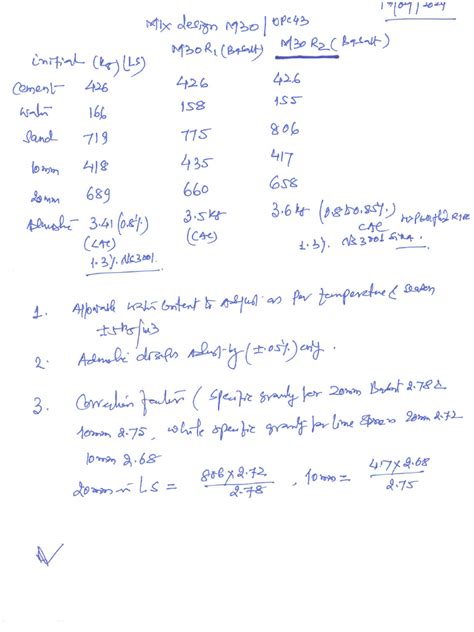 17/07/2024
Mix design M30/OPC43
initial (kg) (LS) M30R1 (Basalt) M30R2 (Basalt)
Cement 426 426 426
Water 166 158 155
Sand 719 775 806
10mm 418 435 417
20mm 689 660 658
3.41 (0.8%) 3.5kg 3.6kg
(CAC) CAC
1.3% NS3001. 1.3%
1. water content to adjust as per temperature & season
±5kg/m3
2. (±.05%) only.
3. Correction factor (specific gravity for 20mm Basalt 2.78 &
10mm 2.75, while specific gravity for lime 20mm 2.72
10mm 2.68
20mm in LS = 806×2.72 / 2.78, 10mm = 417×2.68 / 2.75